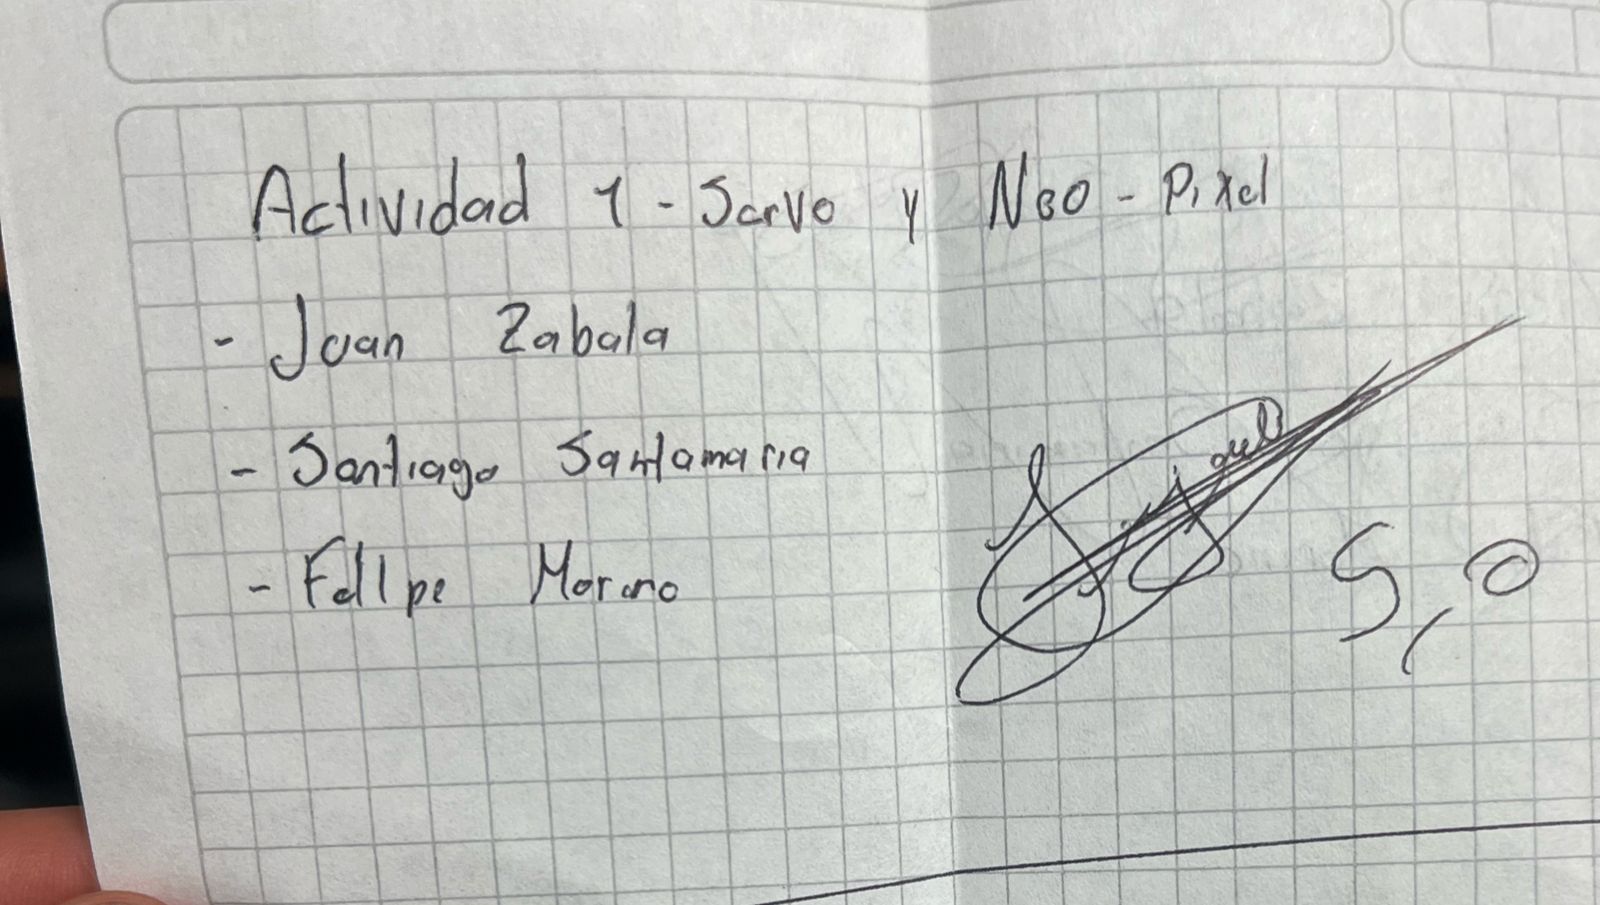 Actividad 1 - Servo y Neo - Pixel
- Juan Zabala
- Santiago Santamaria
- Felipe Moreno
5,0